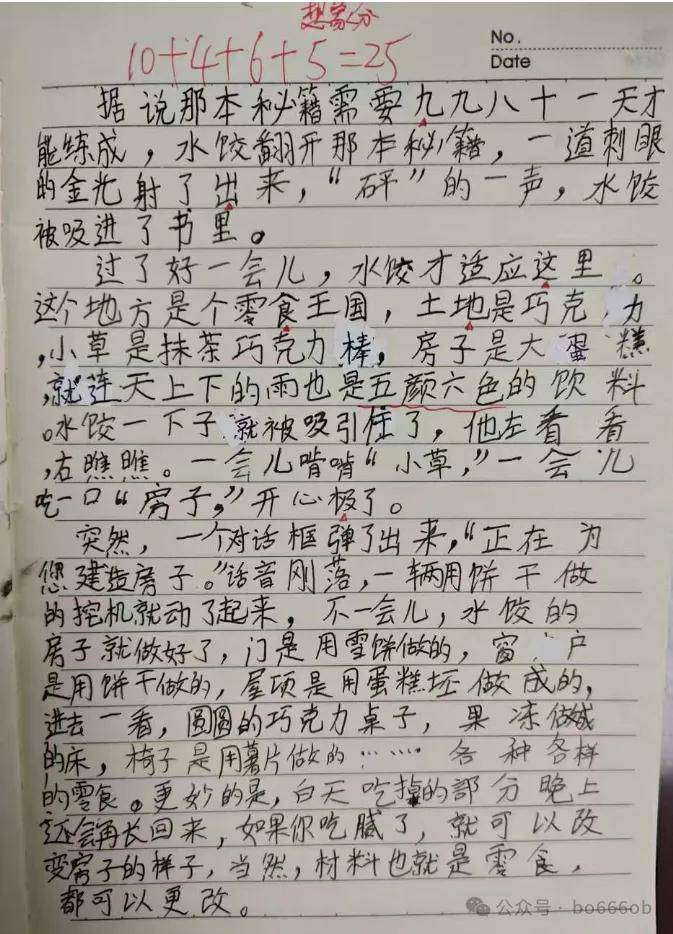 想高分
10+4+6+5=25
No.
Date
据说那本秘籍需要九九八十一天才
能练成，水饺翻开那本秘籍，一道刺眼
的金光射了出来，“砰”的一声，水饺
被吸进了书里。
过了好一会儿，水饺才适应这里。
这个地方是个零食王国，土地是巧克力
，小草是抹茶巧克力棒，房子是大蛋糕
，就连天上下的雨也是五颜六色的饮料
。水饺一下子就被吸引住了，他左看看
，右瞧瞧。一会儿啃啃“小草，”一会儿
吃一口“房子，”开心极了。
突然，一个对话框弹了出来，“正在为
您建造房子。”话音刚落，一辆用饼干做
的挖机就动了起来，不一会儿，水饺的
房子就做好了，门是用雪饼做的，窗户
是用饼干做的，屋顶是用蛋糕坯做成的，
进去一看，圆圆的巧克力桌子，果冻做成
的床，椅子是用薯片做的……各种各样
的零食。更妙的是，白天吃掉的部分晚上
还会再长回来，如果你吃腻了，就可以改
变房子的样子，当然，材料也就是零食，
都可以更改。
公众号·bo666ob